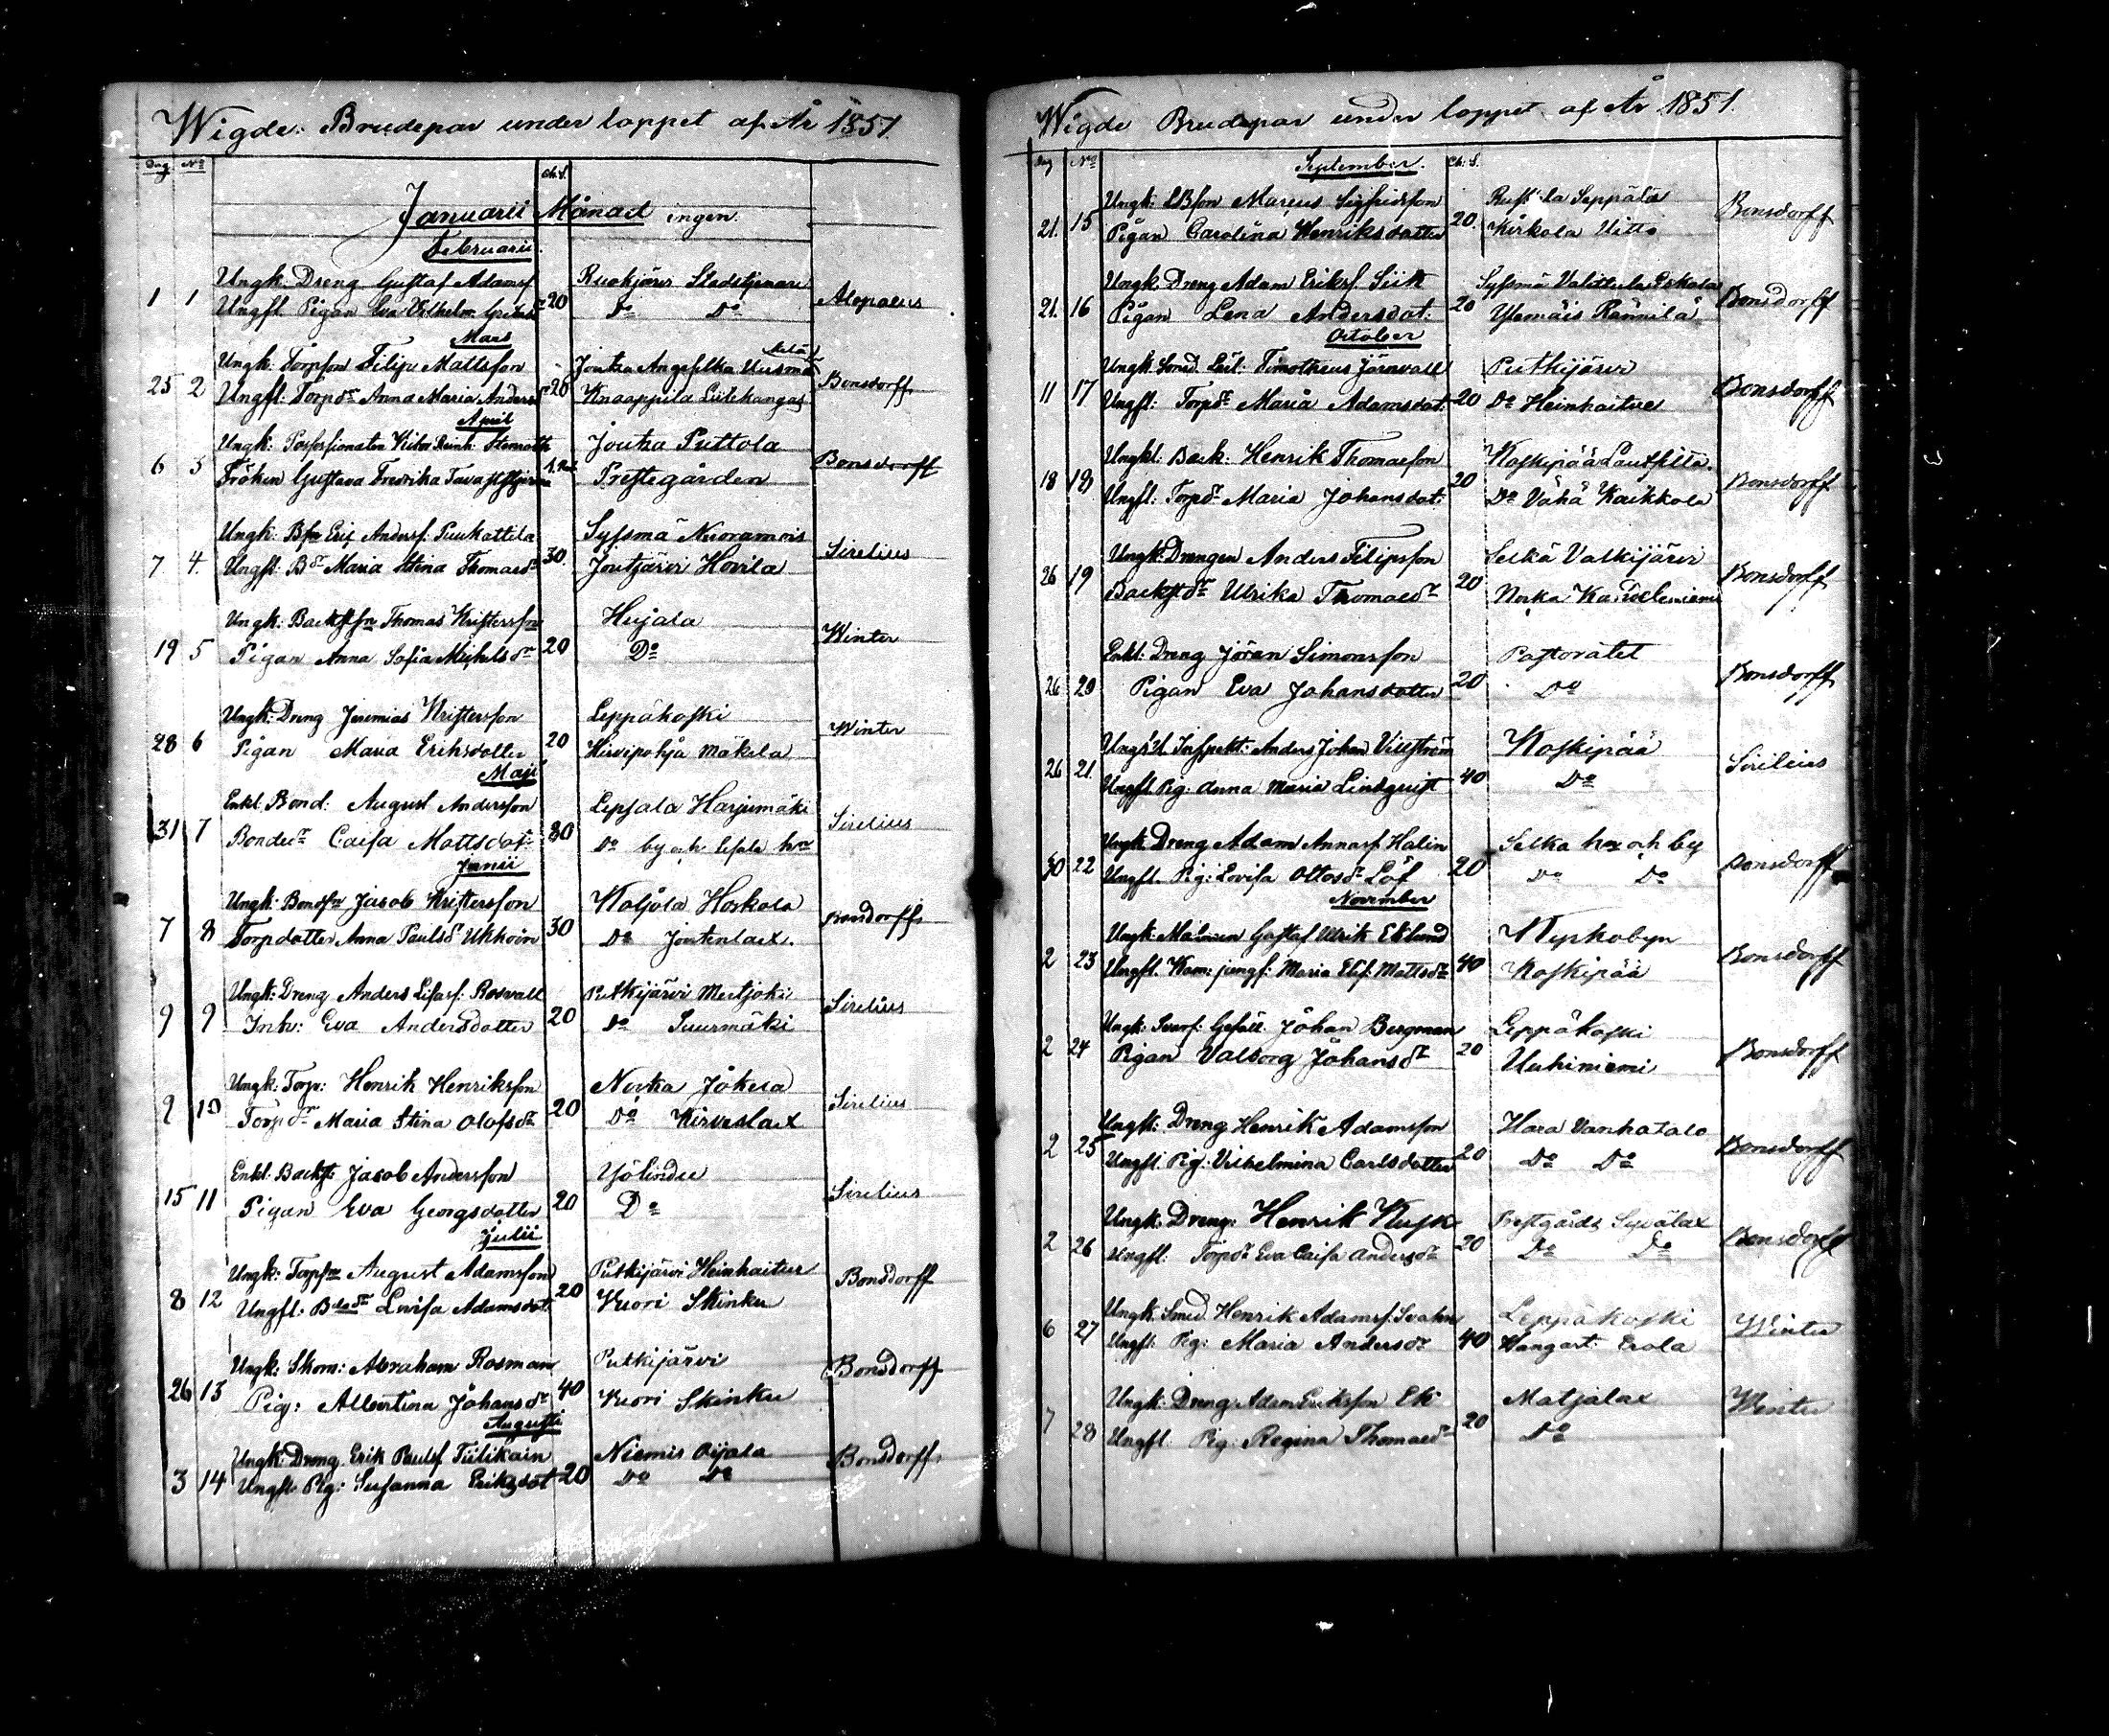 Wigde Brudepar under loppet af År 1851
Dag No Ch. S.
Januarii Månad ingen
Februarii
Ungk. Dreng Gustaf Adamsf. Ruokjärvi Stadstjenare
1 1 Ungfl. Pigan Eva Vilhelm. 20 Do Do Alopaeus
Mars
Ungk. Torpson Filip Mattsson Joutsa Angesselkä Uusmäki
25 2 Ungfl. Torpdr Anna Maria Anders 20 Knaappila Bonsdorff
April
Ungk. Possessionaten Viktor Reinh. Stenroth Joutsa Puttola
6 3 Fröken Gustava Fredrika Tavaststjerna Prestegården Bonsdorff
Ungk: Bson Eric Andersf. Puukattila Syssmä Nuoramois
7. 4. Ungfl. Bdr Maria Stina Thomasdr 30. Joutjärvi Hovila Sirelius
Ungk. Backstsn Thomas Kristersson Hujala
19 5 Pigan Anna Sofia Michelsdr 20 Do Winter
Ungk: Dreng Jeremias Kristersson Leppäkoski
28 6 Pigan Maria Eriksdotter 20 Hirvipohja Mäkelä Winter
Maji
Enkl. Bond: August Andersson Lepsala Harjumäki
31 7 Bondedr Caisa Mattsdot: 30 Do by och Sirelius
Junii
Ungk: Bondsn Jacob Kristersson Matjola Hoskola
7 8 Torpdotter Anna Paulsdr Ukkoin 30 Do Joutenlax. Bonsdorff
Ungk: Dreng Anders Rosvall Putkijärvi Mertjoki
9 9 Inh: Eva Andersdotter 20 Do Suurmäki Sirelius
Ungk: Torp: Henrik Henriksson Norka Jokela
9 10 Torpdr Maria Stina Olofsdr 20 Do Kirveslax Sirelius
Enkl. Backst: Jacob Andersson Yölindu
15 11 Pigan Eva Georgsdotter 20 Do Sirelius
Julii
Ungk: Torpsn August Adamsson Putkijärvi Heinhaitur
8 12 Ungfl. Bdedr Lovisa Adamsdot. 20 Vuori Skinku Bonsdorff
Ungk: Skom: Abraham Rosman Putkijärvi
26 13 Pig: Albertina Johansdr 40 Vuori Skinku Bonsdorff
Augusti
Ungk. Dreng Erik Paulsf Tiilikain Niemis Oijala
3 14 Ungfl. Pig: Susanna Eriksdot 20 Do Do Bonsdorff
Wigde Brudepar under loppet af År 1851.
Dag No Ch: S.
September.
Ungk: Marcus Sigfridsson Seppälä
21. 15 Pigan Carolina Henriksdotter 20. Kirkola Uitto Bonsdorff
Ungk. Dreng Adam Eriksf. Siik Syssmä Valittula Eskola
21. 16 Pigan Lena Andersdot: 20 Ylemäis Rännilä Bonsdorff
October
Ungk. Timotheus Järnvall Putkijärvi
11 17 Ungfl: Torpdr Maria Adamsdot: 20 Do Heinhaitur Bonsdorff
Ungkl: Back: Henrik Thomasson Koskipää Lautsilla.
18 18 Ungfl. Torpdr Maria Johansdot: 20 Do Vähä Kaikkola Bonsdorff
Ungk. Drengen Anders Filipsson Selkä Valkijärvi
26 19 Backstdr Ulrika Thomasdr 20 Norka Bonsdorff
Enkl: Dreng Jöran Simonsson Pastoratet
26 20 Pigan Eva Johansdotter 20 Do Bonsdorff
Inspekt: Anders Johan Villström Koskipää
26 21. Ungfl Pig. Anna Maria Lindqvist 40 Do Sirelius
Ungk Dreng Adam Annasf Halin Selka och by
30 22 Ungfl. Pig: Lovisa Ottosdr Löf 20 Do Do Bonsdorff
November
Ungk Gustaf Ulrik Eklund Kyrkobyn
2 23 Ungfl. Kam: jungf: Maria Elis. Mattsdr 40 Koskipää Bonsdorff
Ungk: Svarf: Gesäll Johan Bergman Leppäkoski
2 24 Pigan Valborg Johansdr 20 Uuhiniemi Bonsdorff
Ungk: Dreng Henrik Adamsson Hara Vanhatalo
2 25 Ungfl. Pig. Vilhelmina Carlsdotter 20 Do Do Bonsdorff
Ungk: Dreng: Henrik Kusk Prestgårds Sysälax
2 26 Ungfl: Torpdr Eva Caisa Andersdr 20 Do Do Bonsdorff
Ungk. Smed Henrik Adamsf. Svahn Leppäkoski
6 27 Ungfl: Pig: Maria Andersdr 40 Wangart: Erola Winter
Ungk: Dreng Adam Eriksson Ek Matjalax
7 28 Ungfl: Pig: Regina Thomasdr 20 Do Winter